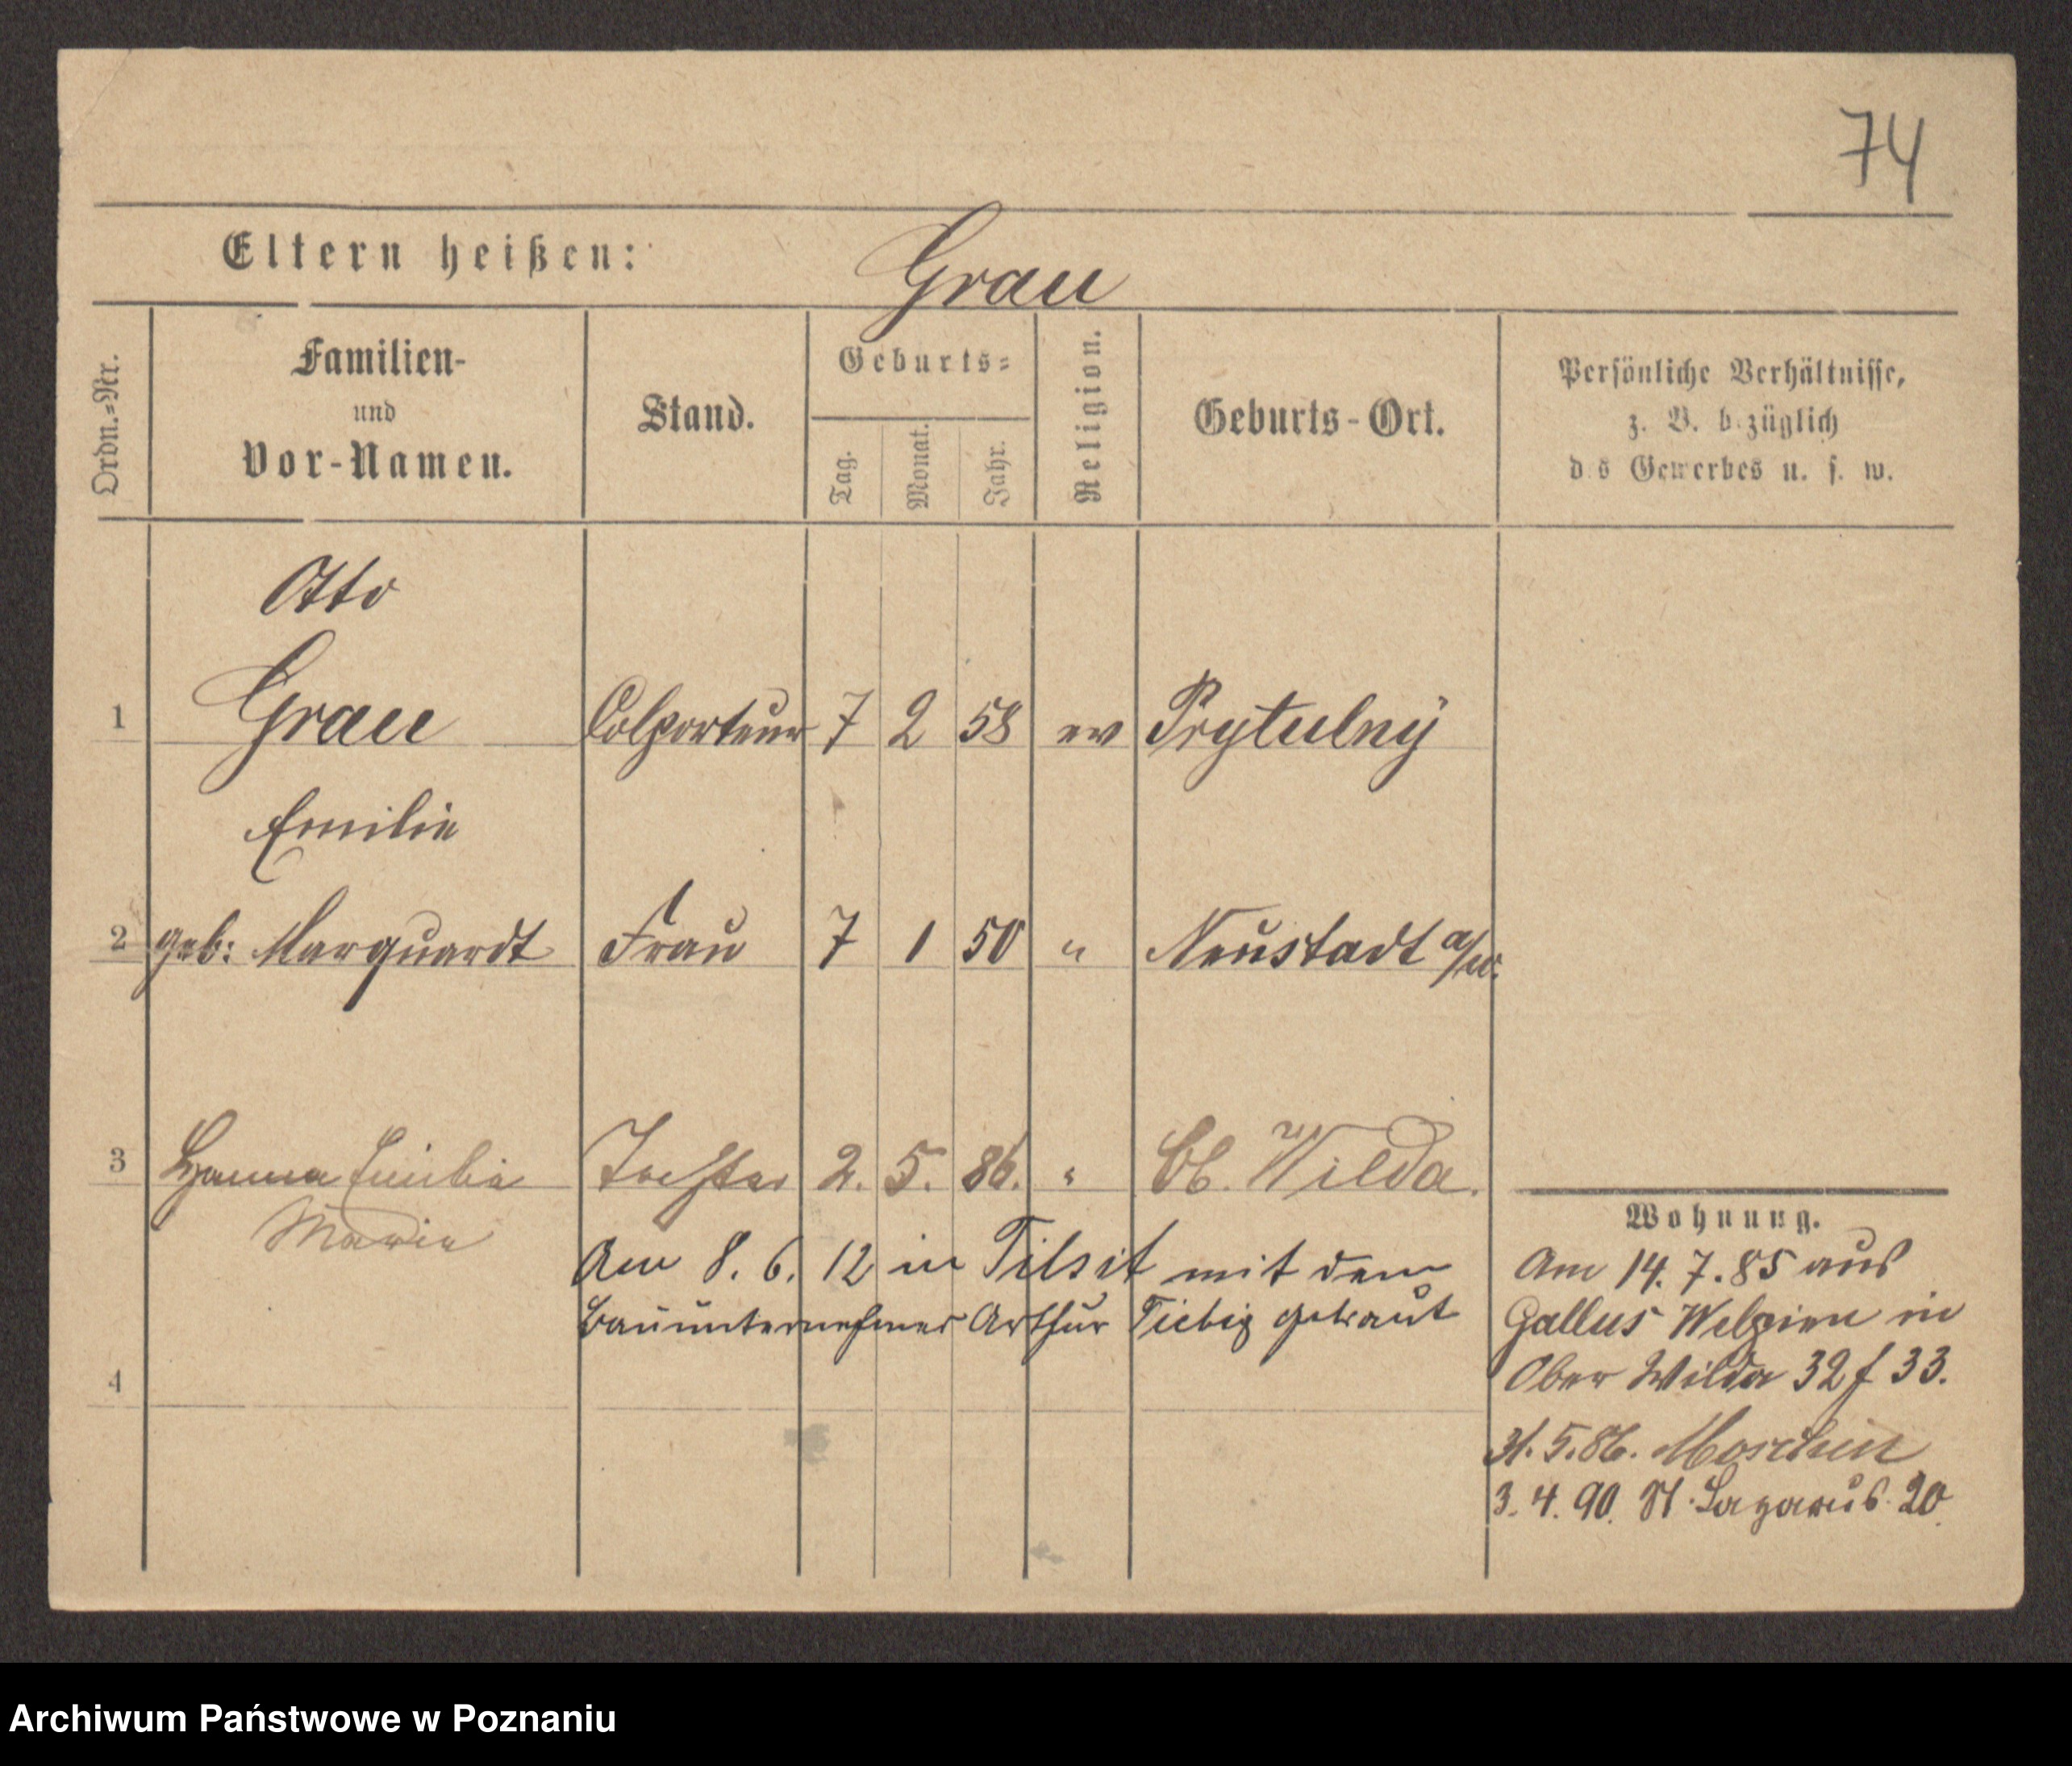 74
Eltern heißen: Grau
Ordn.-Nr.
Familien-
und
Vor-Namen.
Stand.
Geburts-
Tag.
Monat.
Jahr.
Religion.
Geburts-Ort.
Persönliche Verhältnisse,
z. B. bezüglich
des Gewerbes u. s. w.
Otto
1 Grau Colporteur 7 2 58 ev Prytulny
Emilie
2 geb: Marquardt Frau 7 1 50 " Neustadt a/W.
3 Hanna Emilie Tochter 2. 5. 86. " Ob. Wilda.
Marie
Am 8. 6. 12 in Tilsit mit dem
Bauunternehmer Arthur Tiebig getraut
4
Wohnung.
Am 14. 7. 85 aus
Gallus Welpien in
Ober Wilda 32 f 33.
31. 5. 86. Moschin
3. 4. 90. St. Lazarus 20.
Archiwum Państwowe w Poznaniu